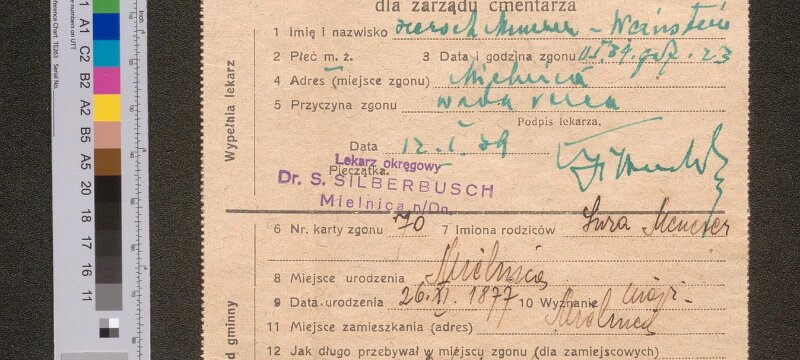 dla zarządu cmentarza
1 Imię i nazwisko Hersch Menerer - Weinstein
2 Płeć m. ż. 3 Data i godzina zgonu 11.I.39. godz. 23
4 Adres (miejsce zgonu) Mielnica
5 Przyczyna zgonu wada serca
Podpis lekarza,
Data 12.I.39
Lekarz okręgowy
Pieczątka.
Dr. S. SILBERBUSCH
Mielnica n/Dn.
Wypełnia lekarz
6 Nr. karty zgonu 70 7 Imiona rodziców Sura
8 Miejsce urodzenia Mielnica
9 Data urodzenia 26.XI.1877 10 Wyznanie mojż.
11 Miejsce zamieszkania (adres) Mielnica
12 Jak długo przebywał w miejscu zgonu (dla zamiejscowych)
d gminny
A1
C2
B2
A2
B5
A5
20
18
17
16
11